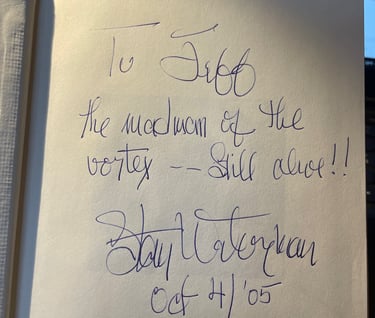 To Jeff
the madman of the
vortex -- Still alive!!
Stan Waterman
Oct 4/'05